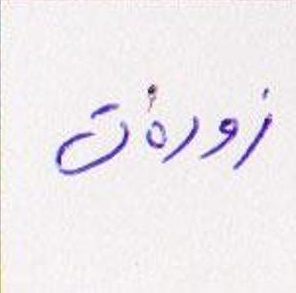 زورهٔت